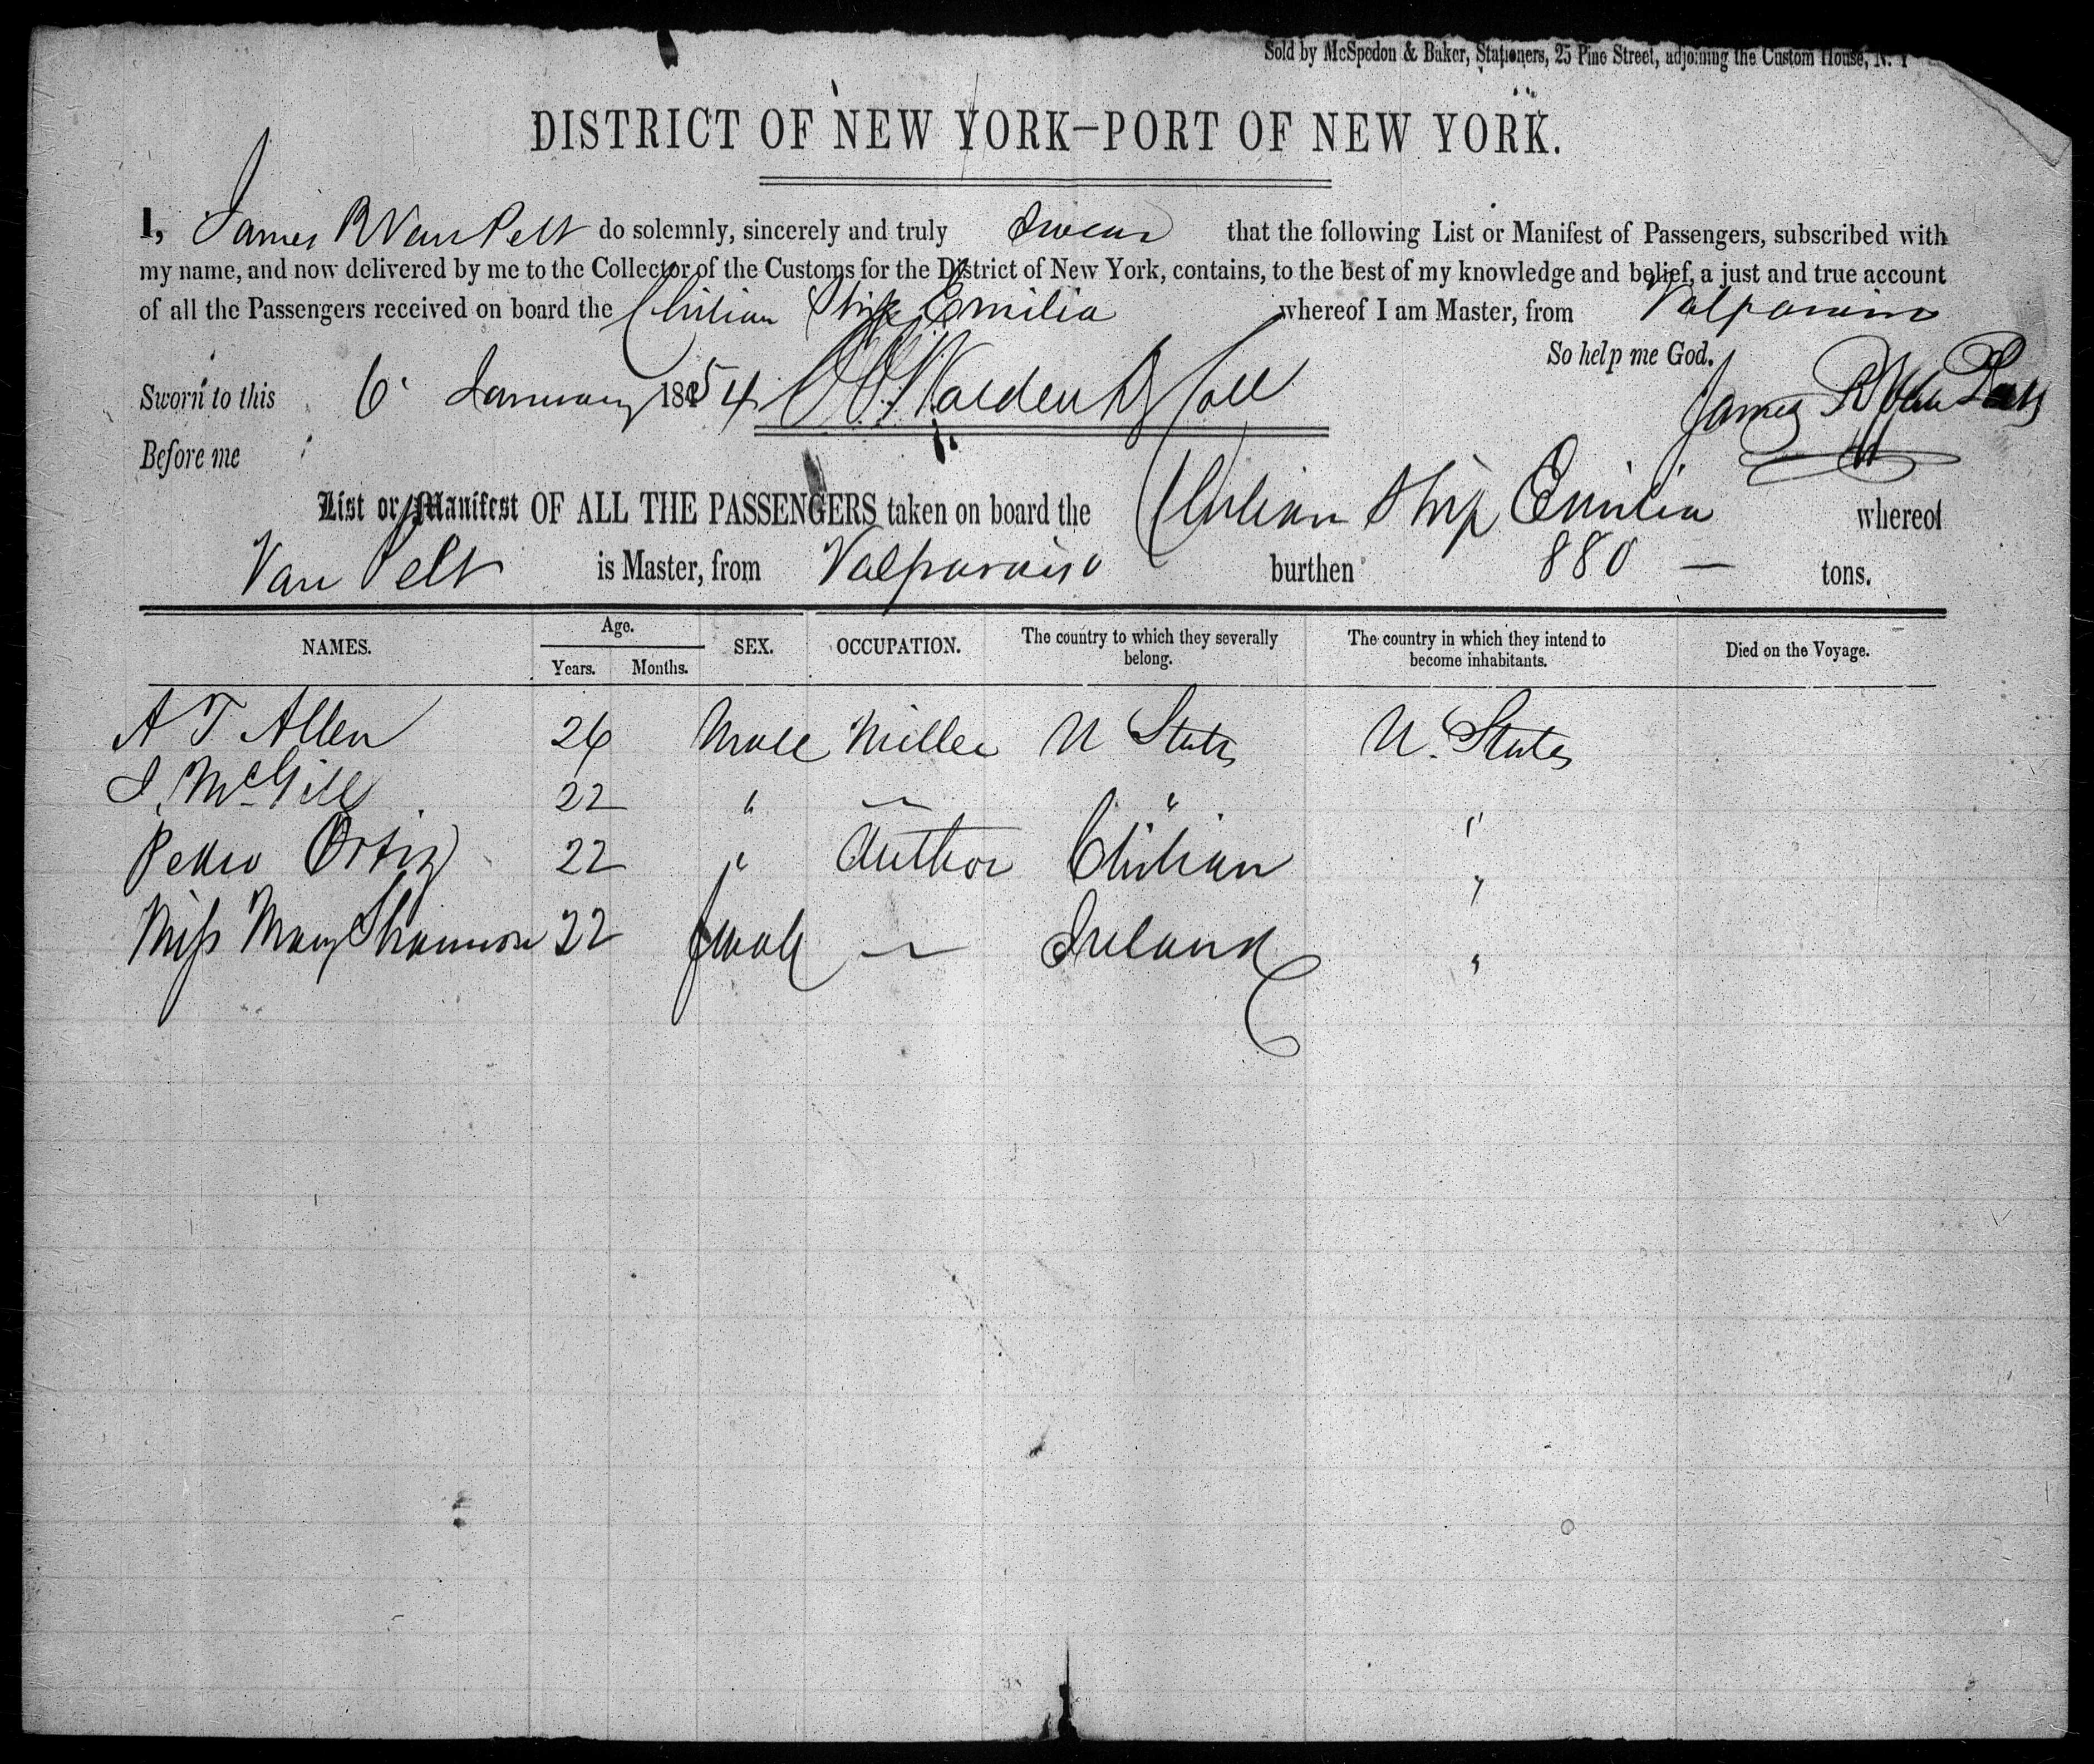 Sold by McSpedon & Baker, Stationers, 25 Pine Street, adjoining the Custom House, N. Y
DISTRICT OF NEW YORK–PORT OF NEW YORK.
I, James R Van Pelt do solemnly, sincerely and truly swear that the following List or Manifest of Passengers, subscribed with
my name, and now delivered by me to the Collector of the Customs for the District of New York, contains, to the best of my knowledge and belief, a just and true account
of all the Passengers received on board the Chilian Ship Emilia whereof I am Master, from Valparaiso
So help me God.
Sworn to this 6 January 1854 Walden Dy Coll James R Van Pelt
Before me
List or Manifest OF ALL THE PASSENGERS taken on board the Chilian Ship Emilia whereof
Van Pelt is Master, from Valparaiso burthen 880 — tons.
NAMES. Age. Years. Months. SEX. OCCUPATION. The country to which they severally belong. The country in which they intend to become inhabitants. Died on the Voyage.
A T Allen 26 Male Miller U States U. States
J. McGill 22 " — " "
Pedro Ortiz 22 " Author Chilian "
Miss Mary Shannon 22 female — Ireland "